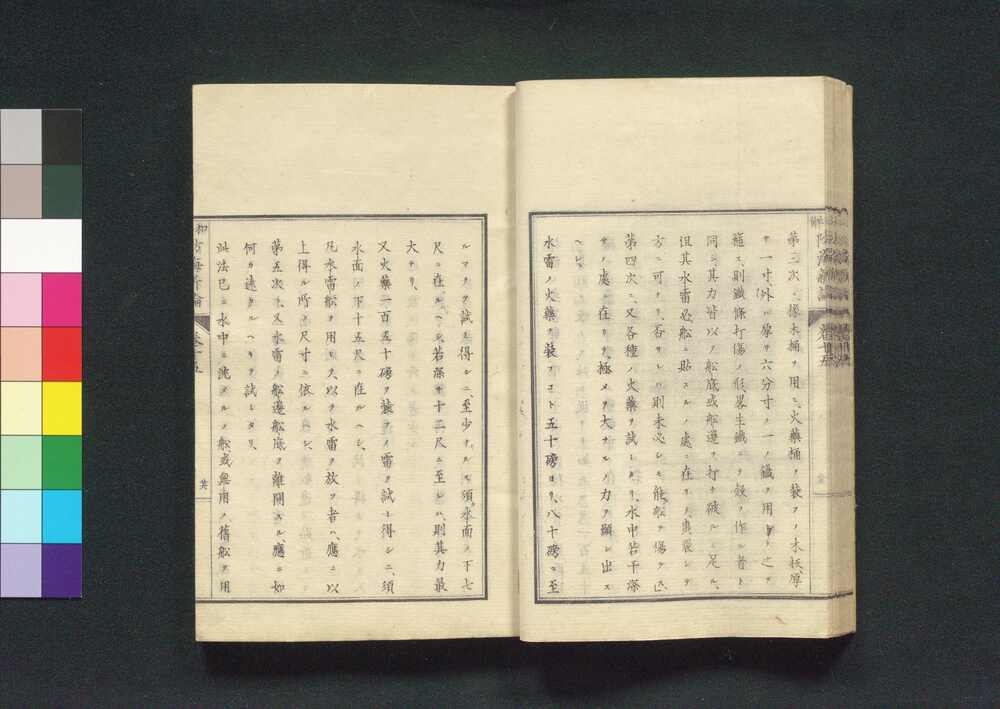 第三次ニ樣木桶ヲ用ヒ火藥桶ヲ裝フノ木板厚
サ一寸、外ハ厚サ六分寸ノ一ノ鐵ヲ用ヒテ之ヲ
箍ス、則鐵條打傷ノ形畧生鐵ニテ殼ヲ作ル者ト
同シ、其力皆以ノ船底或船邊ヲ打チ破ルニ足ル、
但其水雷必船ニ貼スルノ處ニ在リ轟裂シテ
方ニ可ナリ、否サレハ則未必シモ能船ヲ傷ケ
第四次ニ、又各種ノ火藥ヲ試ミタリ、水中若干深
サノ處ニ在リテ、極メテ大ナルノ力ヲ顯シ出ス
ヘシ、
水雷ノ火藥ヲ裝フコト五十磅ヨリ、八十磅ニ至
ルマテヲ試ミ得シニ、至少ナルモ須水面ノ下七
尺ニ在ルヘシ、若深サ十二尺ニ至レハ、則其力最
大ナリ、
又火藥一百五十磅ヲ裝フノ雷ヲ試ミ得シニ、須
水面ノ下十五尺ニ在ルヘシ、
凡水雷船ヲ用ヒ以テ水雷ヲ放ツ者ハ、應ニ以
上得ル所ノ尺寸ニ依ルヘシ、
第五次ニ、又水雷ノ船邊船底ヲ離開スル、應ニ如
何カ遠カルヘキヲ試ミタリ、
此法已ニ水中ニ沈メルノ船或無用ノ舊船ヲ用
防海新論
卷十五